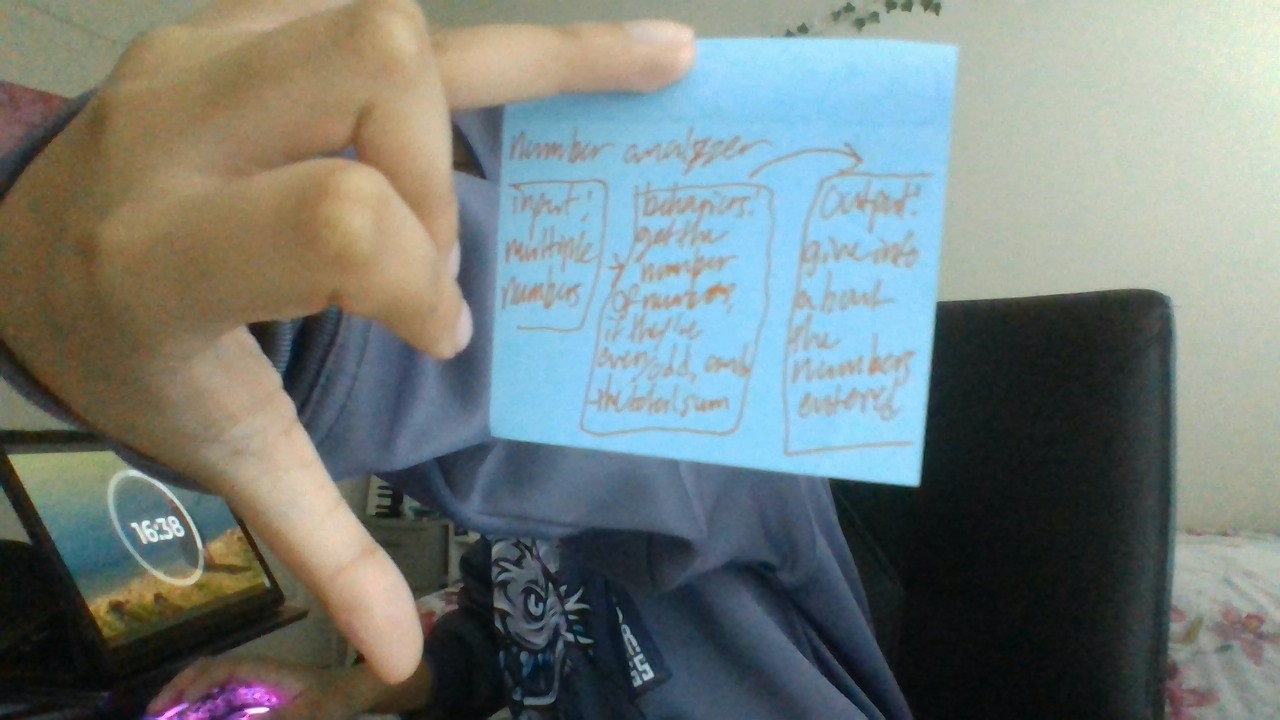 number analyzer
input:
multiple
numbers
behaviors:
get the
number
of numbers,
if they're
even/odd, and
the total sum
output:
give info
about
the
numbers
entered
16:38